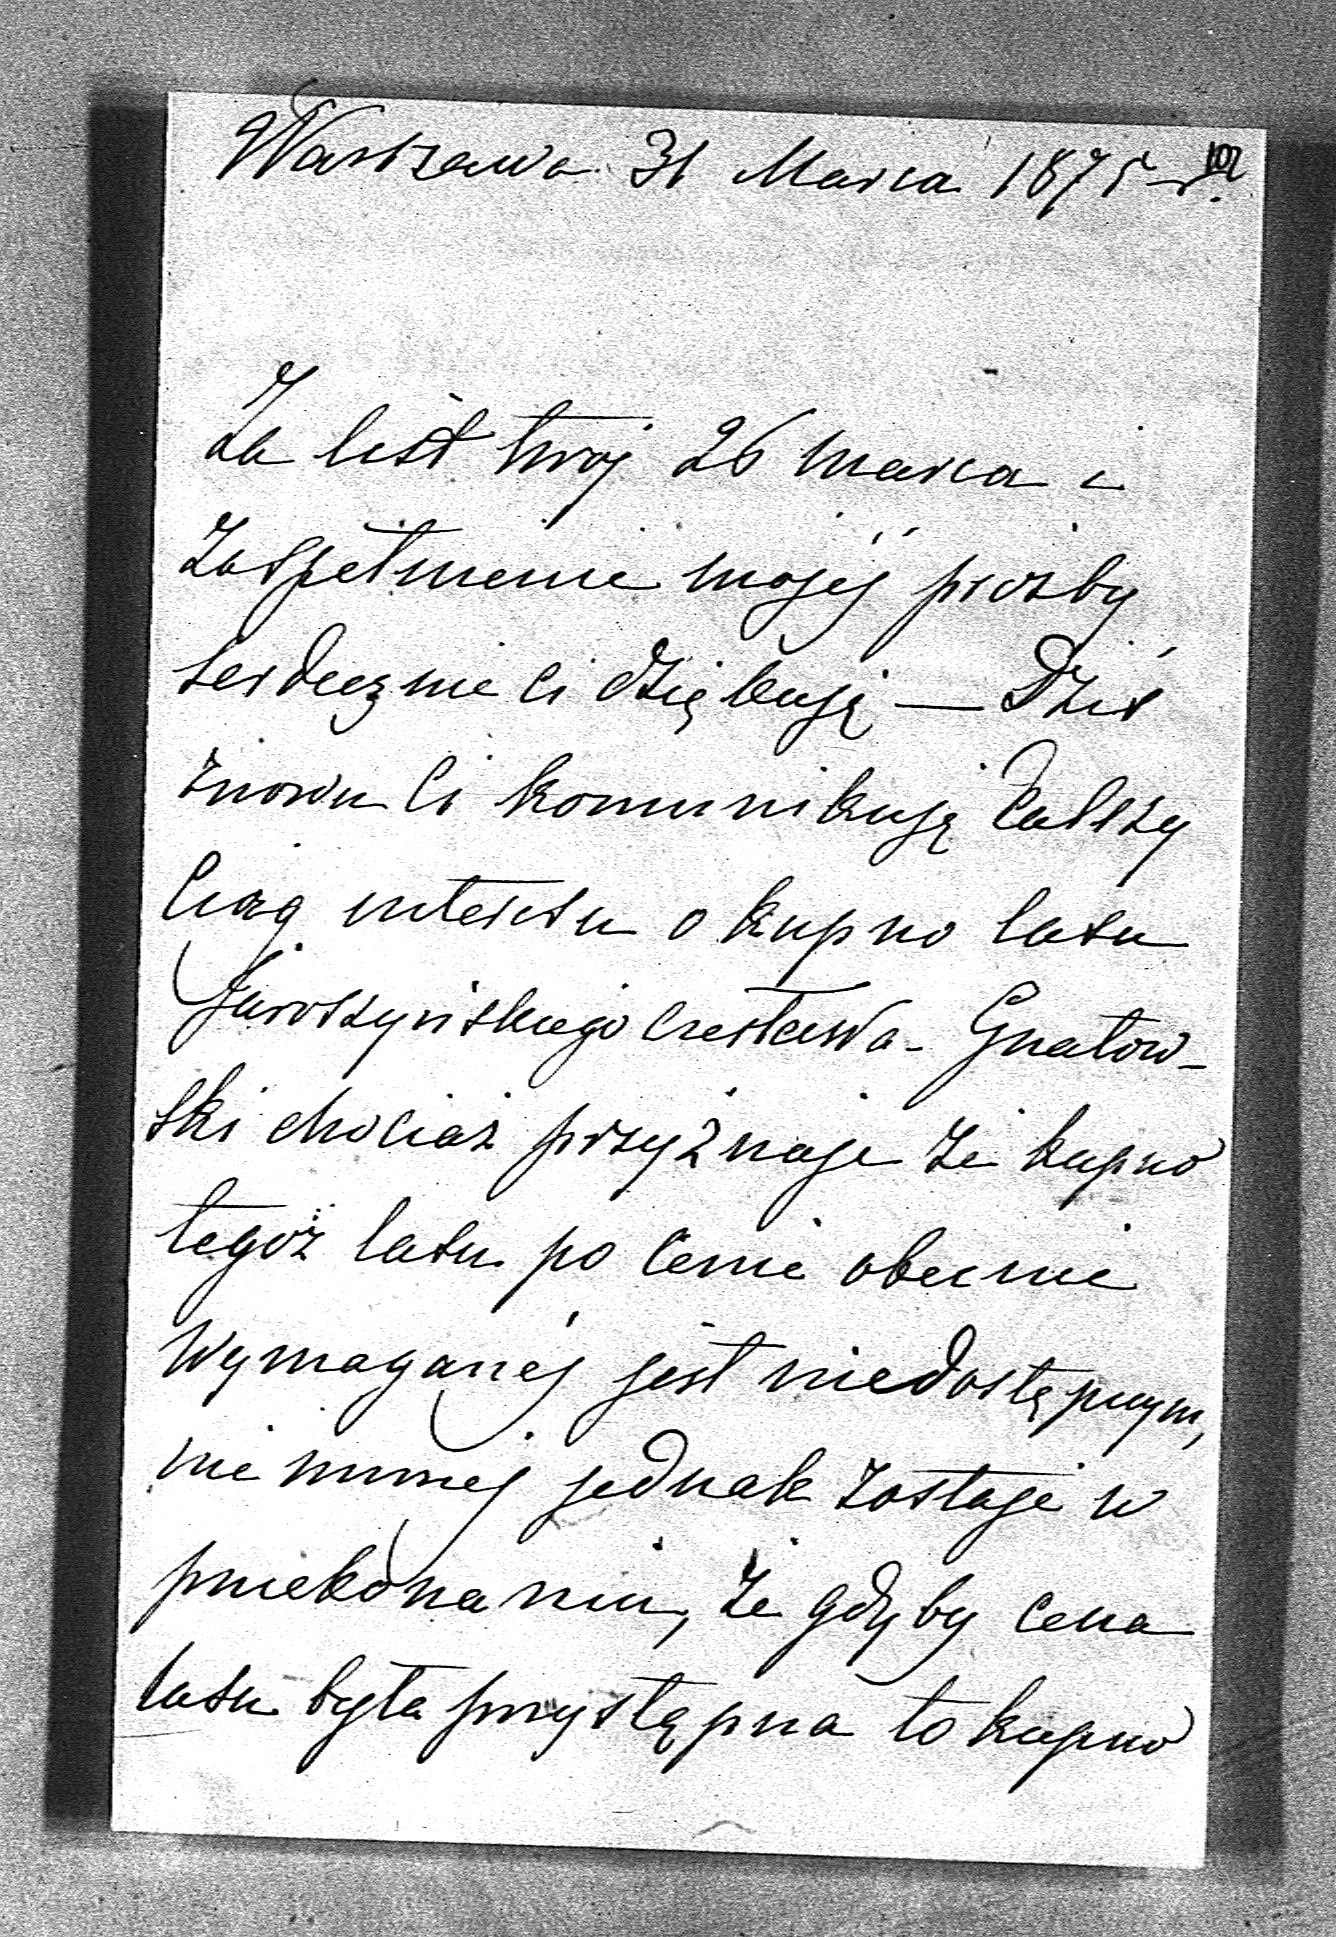 Warszawa 31 Marca 1875 r.
102
Za list twój 26 marca i
zaspełnienie mojéj prośby
serdecznie ci dziękuję — Dziś
znowu Ci komunikuję dalszy
Ciąg interesu o kupno lasu
Jaroszyńskiego Czesława - Gnatow-
ski chociaż przyznaje że kupno
tegoż lasu po cenie obecnie
wymaganéj jest niedostępnym,
nie mniej jednak zostaje w
przekonaniu, że gdyby cena
lasu była przystępna to kupno